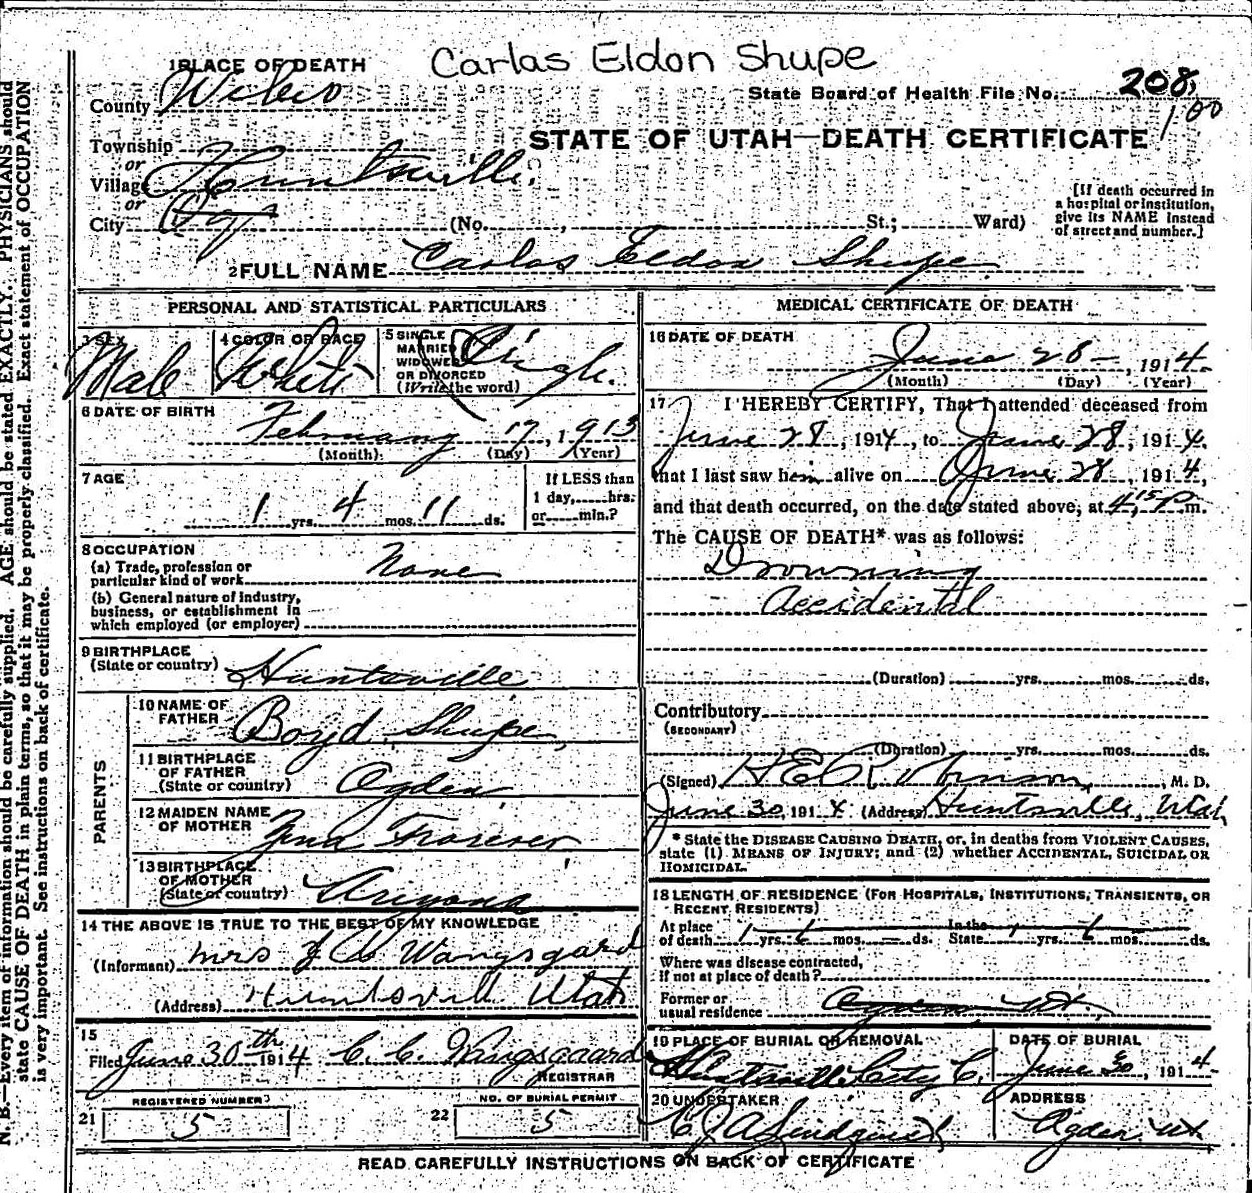 Carlas Eldon Shupe
1 PLACE OF DEATH
County Weber
State Board of Health File No. 208
100
STATE OF UTAH—DEATH CERTIFICATE
Township
or
Village Huntsville.
or
City Og
(No. , St.; Ward)
[If death occurred in
a hospital or institution,
give its NAME instead
of street and number.]
2 FULL NAME Carlas Eldon Shupe
PERSONAL AND STATISTICAL PARTICULARS
3 SEX
Male
4 COLOR OR RACE
White
5 SINGLE
MARRIED
WIDOWED
OR DIVORCED
(Write the word)
Single.
6 DATE OF BIRTH
February 17, 1913
(Month) (Day) (Year)
7 AGE
1 yrs. 4 mos. 11 ds.
If LESS than
1 day, hrs.
or min.?
8 OCCUPATION
(a) Trade, profession or
particular kind of work None
(b) General nature of industry,
business, or establishment in
which employed (or employer)
9 BIRTHPLACE
(State or country) Huntsville
PARENTS
10 NAME OF
FATHER Boyd Shupe
11 BIRTHPLACE
OF FATHER
(State or country) Ogden
12 MAIDEN NAME
OF MOTHER
13 BIRTHPLACE
OF MOTHER
(State or country) Arizona
14 THE ABOVE IS TRUE TO THE BEST OF MY KNOWLEDGE
(Informant) Mrs Wangsgard
(Address) Huntsvill Utah
15
Filed June 30th 1914 C. C. Wangsgaard
REGISTRAR
REGISTERED NUMBER
21 5
NO. OF BURIAL PERMIT
22 5
MEDICAL CERTIFICATE OF DEATH
16 DATE OF DEATH
June 28, 1914
(Month) (Day) (Year)
17 I HEREBY CERTIFY, That I attended deceased from
June 28, 1914, to June 28, 1914.
that I last saw him alive on June 28, 1914,
and that death occurred, on the date stated above, at 4.15 P m.
The CAUSE OF DEATH* was as follows:
Drowning
Accidental
(Duration) yrs. mos. ds.
Contributory
(SECONDARY)
(Duration) yrs. mos. ds.
(Signed) , M. D.
June 30, 1914 (Address) Huntsville, Utah
* State the DISEASE CAUSING DEATH, or, in deaths from VIOLENT CAUSES,
state (1) MEANS OF INJURY; and (2) whether ACCIDENTAL, SUICIDAL OR
HOMICIDAL.
18 LENGTH OF RESIDENCE (FOR HOSPITALS, INSTITUTIONS, TRANSIENTS, OR
RECENT RESIDENTS)
At place In the
of death 1 yrs. 6 mos. — ds. State 1 yrs. 6 mos. ds.
Where was disease contracted,
If not at place of death?
Former or
usual residence Ogden Ut.
19 PLACE OF BURIAL OR REMOVAL
Huntsville City C.
DATE OF BURIAL
June 30, 1914
20 UNDERTAKER
Lindquist
ADDRESS
Ogden Ut
READ CAREFULLY INSTRUCTIONS ON BACK OF CERTIFICATE
N. B.—Every item of information should be carefully supplied. AGE should be stated EXACTLY. PHYSICIANS should
state CAUSE OF DEATH in plain terms, so that it may be properly classified. Exact statement of OCCUPATION
is very important. See instructions on back of certificate.